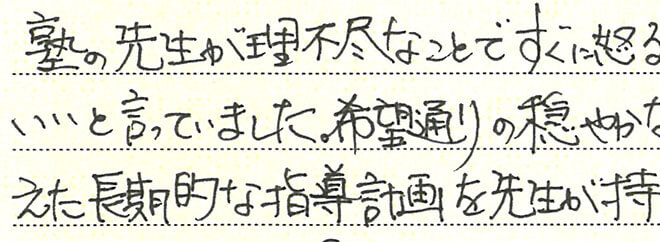 塾の先生が理不尽なことですぐに怒る
いいと言っていました。希望通りの穏やかな
えた長期的な指導計画を先生が持